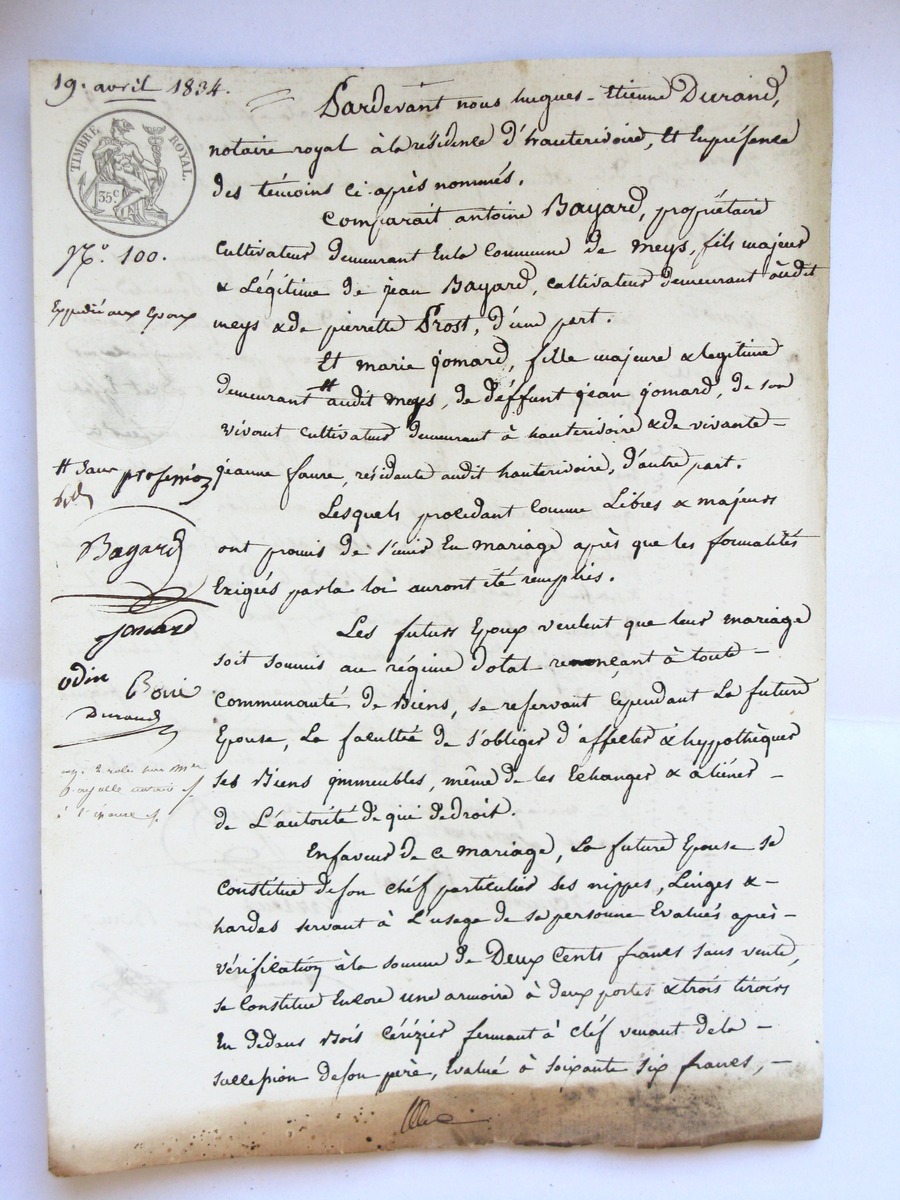 19. avril 1834.
TIMBRE ROYAL.
35 c
N.º 100.
Expédié aux Epoux
Pardevant nous hugues-Etienne Durand,
notaire royal à la résidence d'hauterivoire, Et En présence
des témoins ci-après nommés.
Comparait antoine Bayard, propriétaire
Cultivateur demeurant En la Commune de meys, fils majeur
& Légitime de jean Bayard, cultivateur demeurant audit
meys & de pierrette Prost, d'une part.
Et marie jomard, fille majeure & legitime
demeurant # audit meys, de deffunt jean jomard, de son
vivant cultivateur demeurant à hauterivoire & de vivante -
jeanne faure, résidante audit hauterivoire, d'autre part.
# sans profession
Bayard
jomard
odin
Durand
Lesquels procédant comme Libres & majeurs
ont promis de s'unir En mariage après que les formalités
Exigées par la loi auront été remplies.
Les futurs Epoux veulent que leur mariage
soit soumis au régime dotal renonçant à toute -
Communauté de Biens, se reservant cependant La future
Epouse, La faculté de s'obliger d'affecter & hypothèquer
ses Biens immeubles, même de les Echanger & aliéner -
de L'autorité de qui de droit.
En faveur de ce mariage, La future Epouse se
Constitue de son chéf particulier ses nippes, Linges & -
hardes servant à L'usage de sa personne Evalués après -
vérification à la somme de Deux Cents francs sans vente,
se Constitue Encore une armoire à deux portes & trois tiroirs
En dedans Bois Cérizier fermant à cléf venant de la -
succession de son père, Evalué à soixante six francs, -